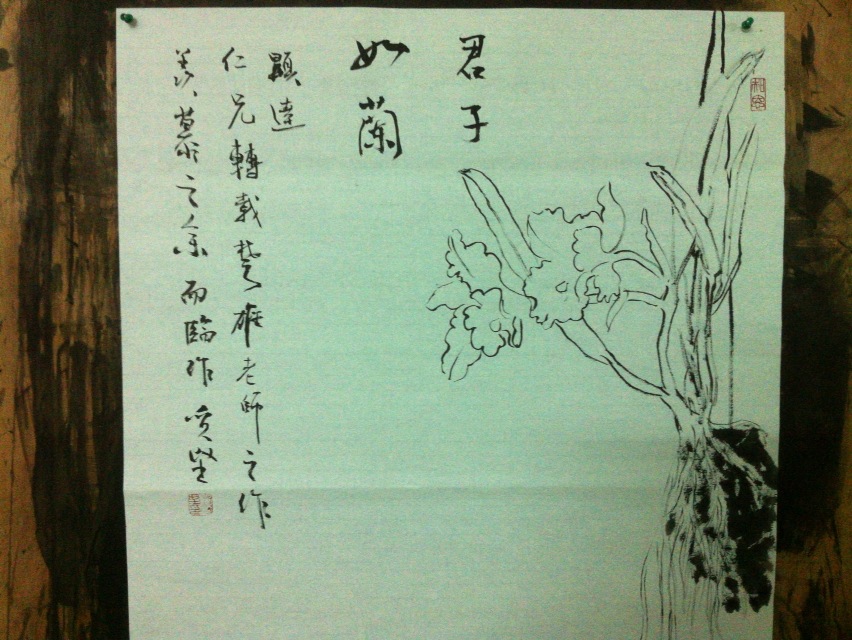 君子
如蘭
顯達
仁兄轉載楚雄老師之作
羨慕之余而臨作